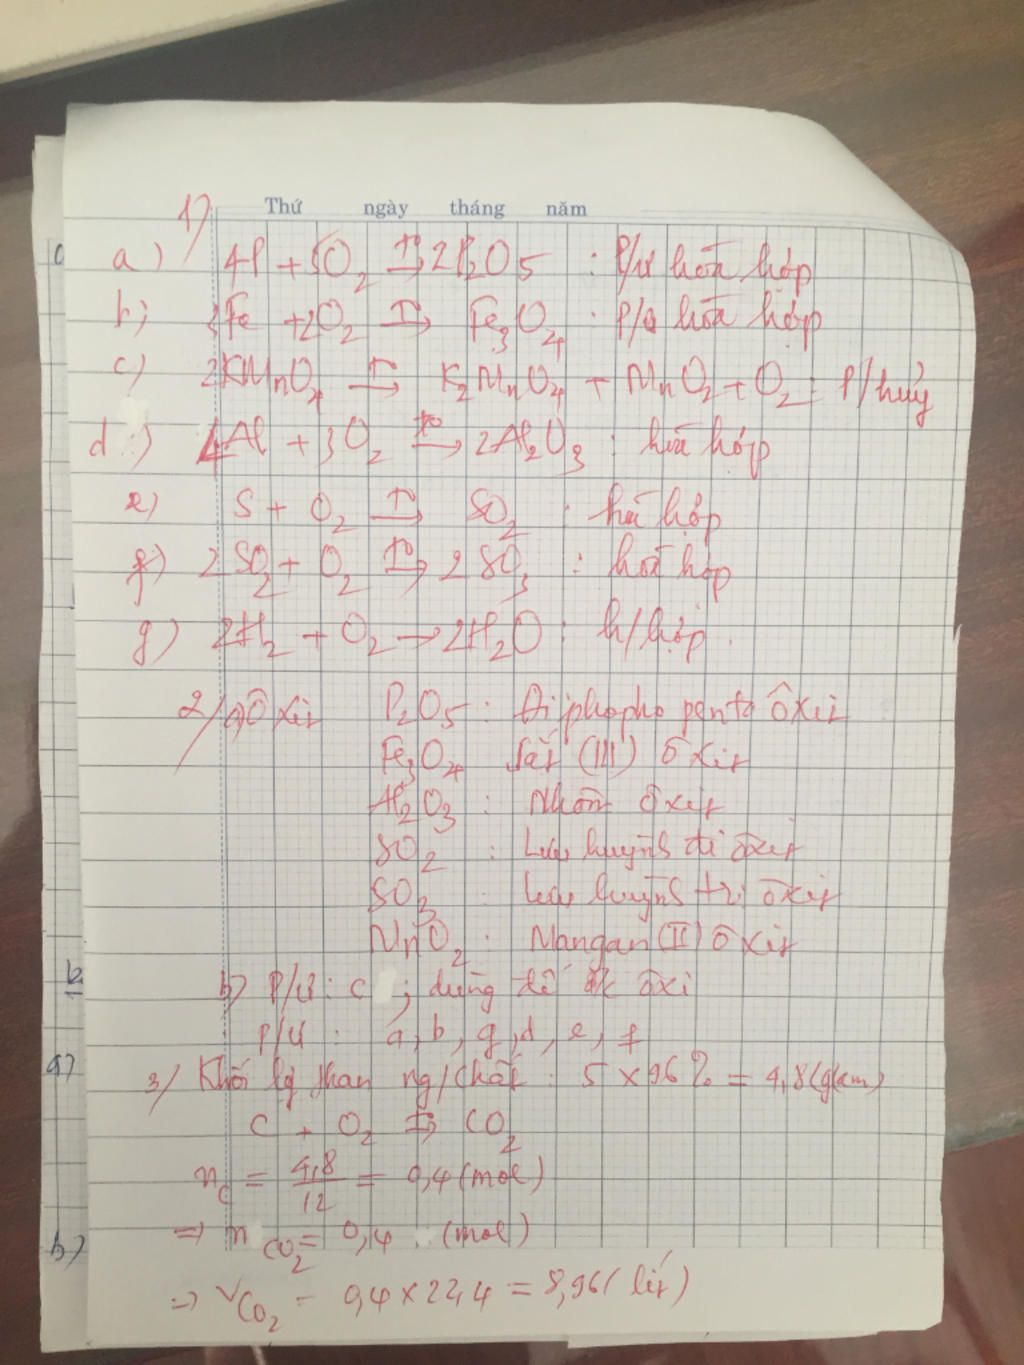 Thứ ngày tháng năm
1)
a) 4P + 5O2 t°→ 2P2O5 : P/ư hóa hợp
b) 3Fe + 2O2 t°→ Fe3O4 : P/ư hóa hợp
c) 2KMnO4 t°→ K2MnO4 + MnO2 + O2 : P/hủy
d) 4Al + 3O2 t°→ 2Al2O3 : hóa hợp
e) S + O2 t°→ SO2 : hóa hợp
f) 2SO2 + O2 t°→ 2SO3 : hóa hợp
g) 2H2 + O2 → 2H2O : h/hợp.
2/ a) Ôxit P2O5 : Điphotpho penta ôxit
Fe3O4 Sắt (III) ôxit
Al2O3 : Nhôm ôxit
SO2 : Lưu huỳnh đi ôxit
SO3 : Lưu huỳnh tri ôxit
MnO2 : Mangan (II) ôxit
b) P/ư : c ; dùng để đ/c ôxi
P/ư : a, b, g, d, e, f
3/ Khối lg than ng/chất : 5 × 96% = 4,8 (gam)
C + O2 t°→ CO2
nC = 4,8/12 = 0,4 (mol)
⇒ nCO2 = 0,4 (mol)
⇒ VCO2 = 0,4 × 22,4 = 8,96 (lít)
12
a)
b)